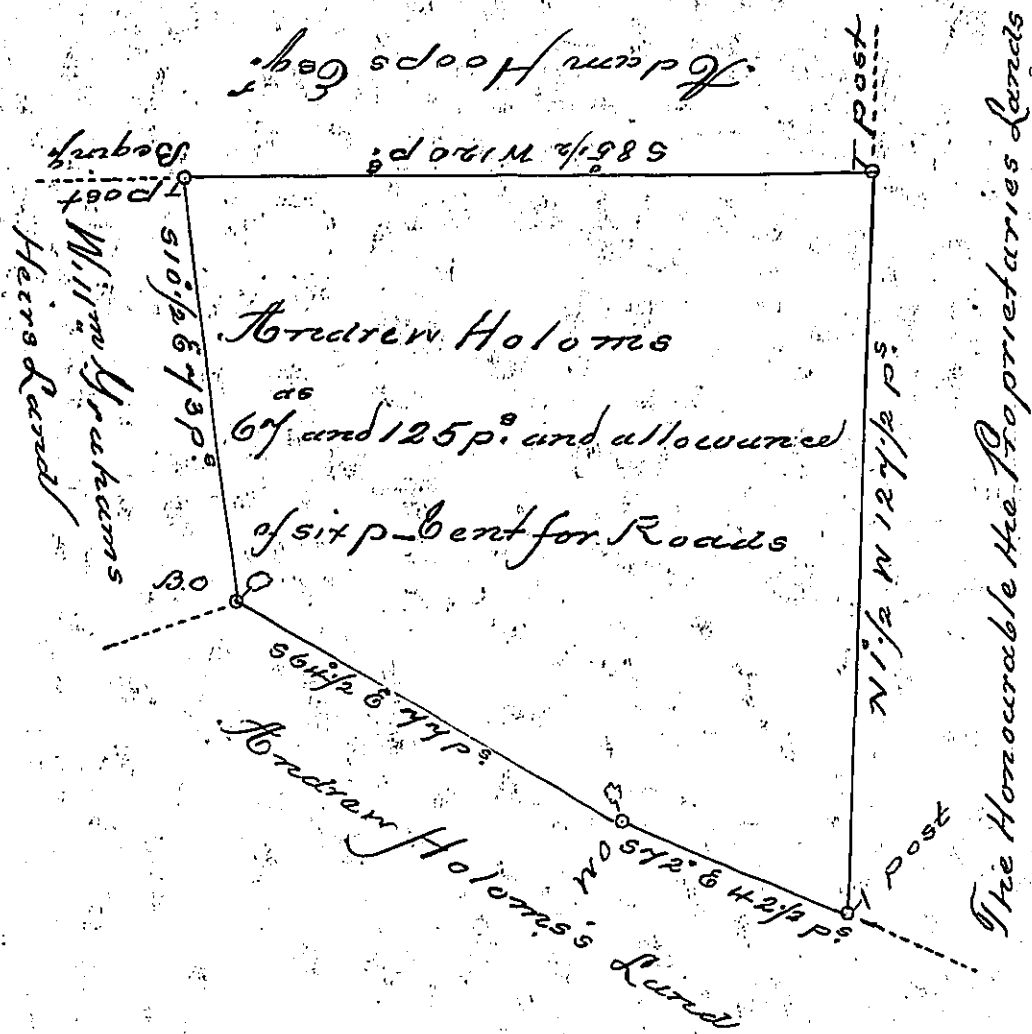 Adam Hoops Esqr.
S 85°1/2 W 120 ps.
T post
Begining
T post
Willm. Grahams
Heirs Land
S 10°1/2 E 73 ps.
Andrew Holoms
67 as and 125 ps. and allowance
of six p Cent for Roads
B.O
S 64°1/2 E 77 ps.
Andrew Holoms's Land
W O
S 72° E 42 1/2 ps.
N 1°1/2 W 127 1/2 ps.
T Post
The Honourable the Proprietaries Lands